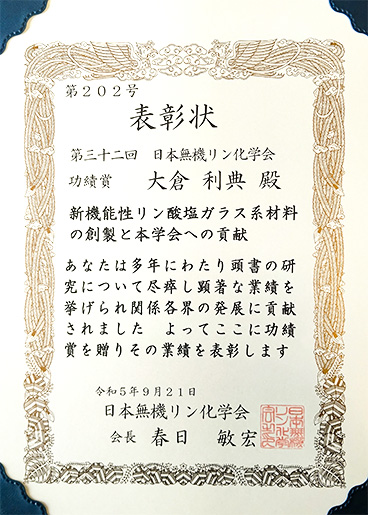 第202号
表彰状
第三十二回 日本無機リン化学会
功績賞 大倉 利典 殿
新機能性リン酸塩ガラス系材料
の創製と本学会への貢献
あなたは多年にわたり頭書の研
究について尽瘁し顕著な業績を
挙げられ関係各界の発展に貢献
されました よってここに功績
賞を贈りその業績を表彰します
令和5年9月21日
日本無機リン化学会
会長 春日 敏宏